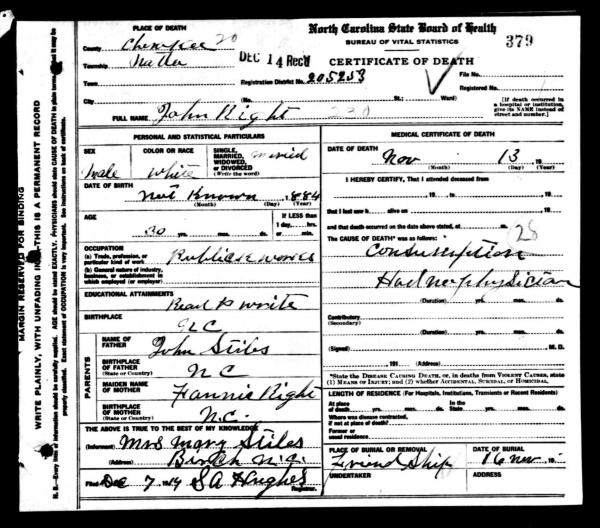 North Carolina State Board of Health
BUREAU OF VITAL STATISTICS
379
CERTIFICATE OF DEATH
PLACE OF DEATH
County Cherokee 20
Township
DEC 14 Rec'd
Town
Registration District No. 205253
File No.
Registered No.
City
(No. St.; Ward)
[If death occurred in a hospital or institution, give its NAME instead of street and number.]
FULL NAME John Right
PERSONAL AND STATISTICAL PARTICULARS
SEX
male
COLOR OR RACE
white
SINGLE, MARRIED, WIDOWED, or DIVORCED
(Write the word)
married
DATE OF BIRTH
not Known, 1884
(Month) (Day) (Year)
AGE
30 yrs. mos. ds.
IF LESS than 1 day, hrs. or min.
OCCUPATION
(a) Trade, profession, or particular kind of work
Public works
(b) General nature of industry, business, or establishment in which employed (or employer)
EDUCATIONAL ATTAINMENTS
Read & write
BIRTHPLACE
NAME OF FATHER
John Stiles
BIRTHPLACE OF FATHER
(State or Country)
N C
MAIDEN NAME OF MOTHER
Fannie Right
BIRTHPLACE OF MOTHER
(State or Country)
N.C.
PARENTS
THE ABOVE IS TRUE TO THE BEST OF MY KNOWLEDGE
(Informant) Mrs Mary Stiles
(Address) Birch N.C.
Filed Dec 7, 1914 S A Hughes
Registrar.
MEDICAL CERTIFICATE OF DEATH
DATE OF DEATH
Nov 13, 19
(Month) (Day)
I HEREBY CERTIFY, That I attended deceased from
, 19 , to , 19
that I last saw h alive on , 19
and that death occurred on the date above stated, at m.
The CAUSE OF DEATH* was as follows:
28
Consumption
Had no physician
(Duration) yrs. mos. ds.
Contributory
(Secondary)
(Duration) yrs. mos. ds.
(Signed) M.D.
191 (Address)
*State the DISEASE CAUSING DEATH, or, in deaths from VIOLENT CAUSES, state (1) MEANS OF INJURY; and (2) whether ACCIDENTAL, SUICIDAL, or HOMICIDAL.
LENGTH OF RESIDENCE (For Hospitals, Institutions, Transients or Recent Residents)
At place of death yrs. mos. ds. In the State yrs. mos. ds.
Where was disease contracted, if not at place of death?
Former or usual residence
PLACE OF BURIAL OR REMOVAL
Friend Ship
DATE OF BURIAL
16 Nov, 19
UNDERTAKER
ADDRESS
MARGIN RESERVED FOR BINDING
WRITE PLAINLY, WITH UNFADING INK—THIS IS A PERMANENT RECORD
N. B.—Every item of information should be carefully supplied. AGE should be stated EXACTLY. PHYSICIANS should state CAUSE OF DEATH in plain terms, so that it may be properly classified. Exact statement of OCCUPATION is very important. See instructions on back of certificate.